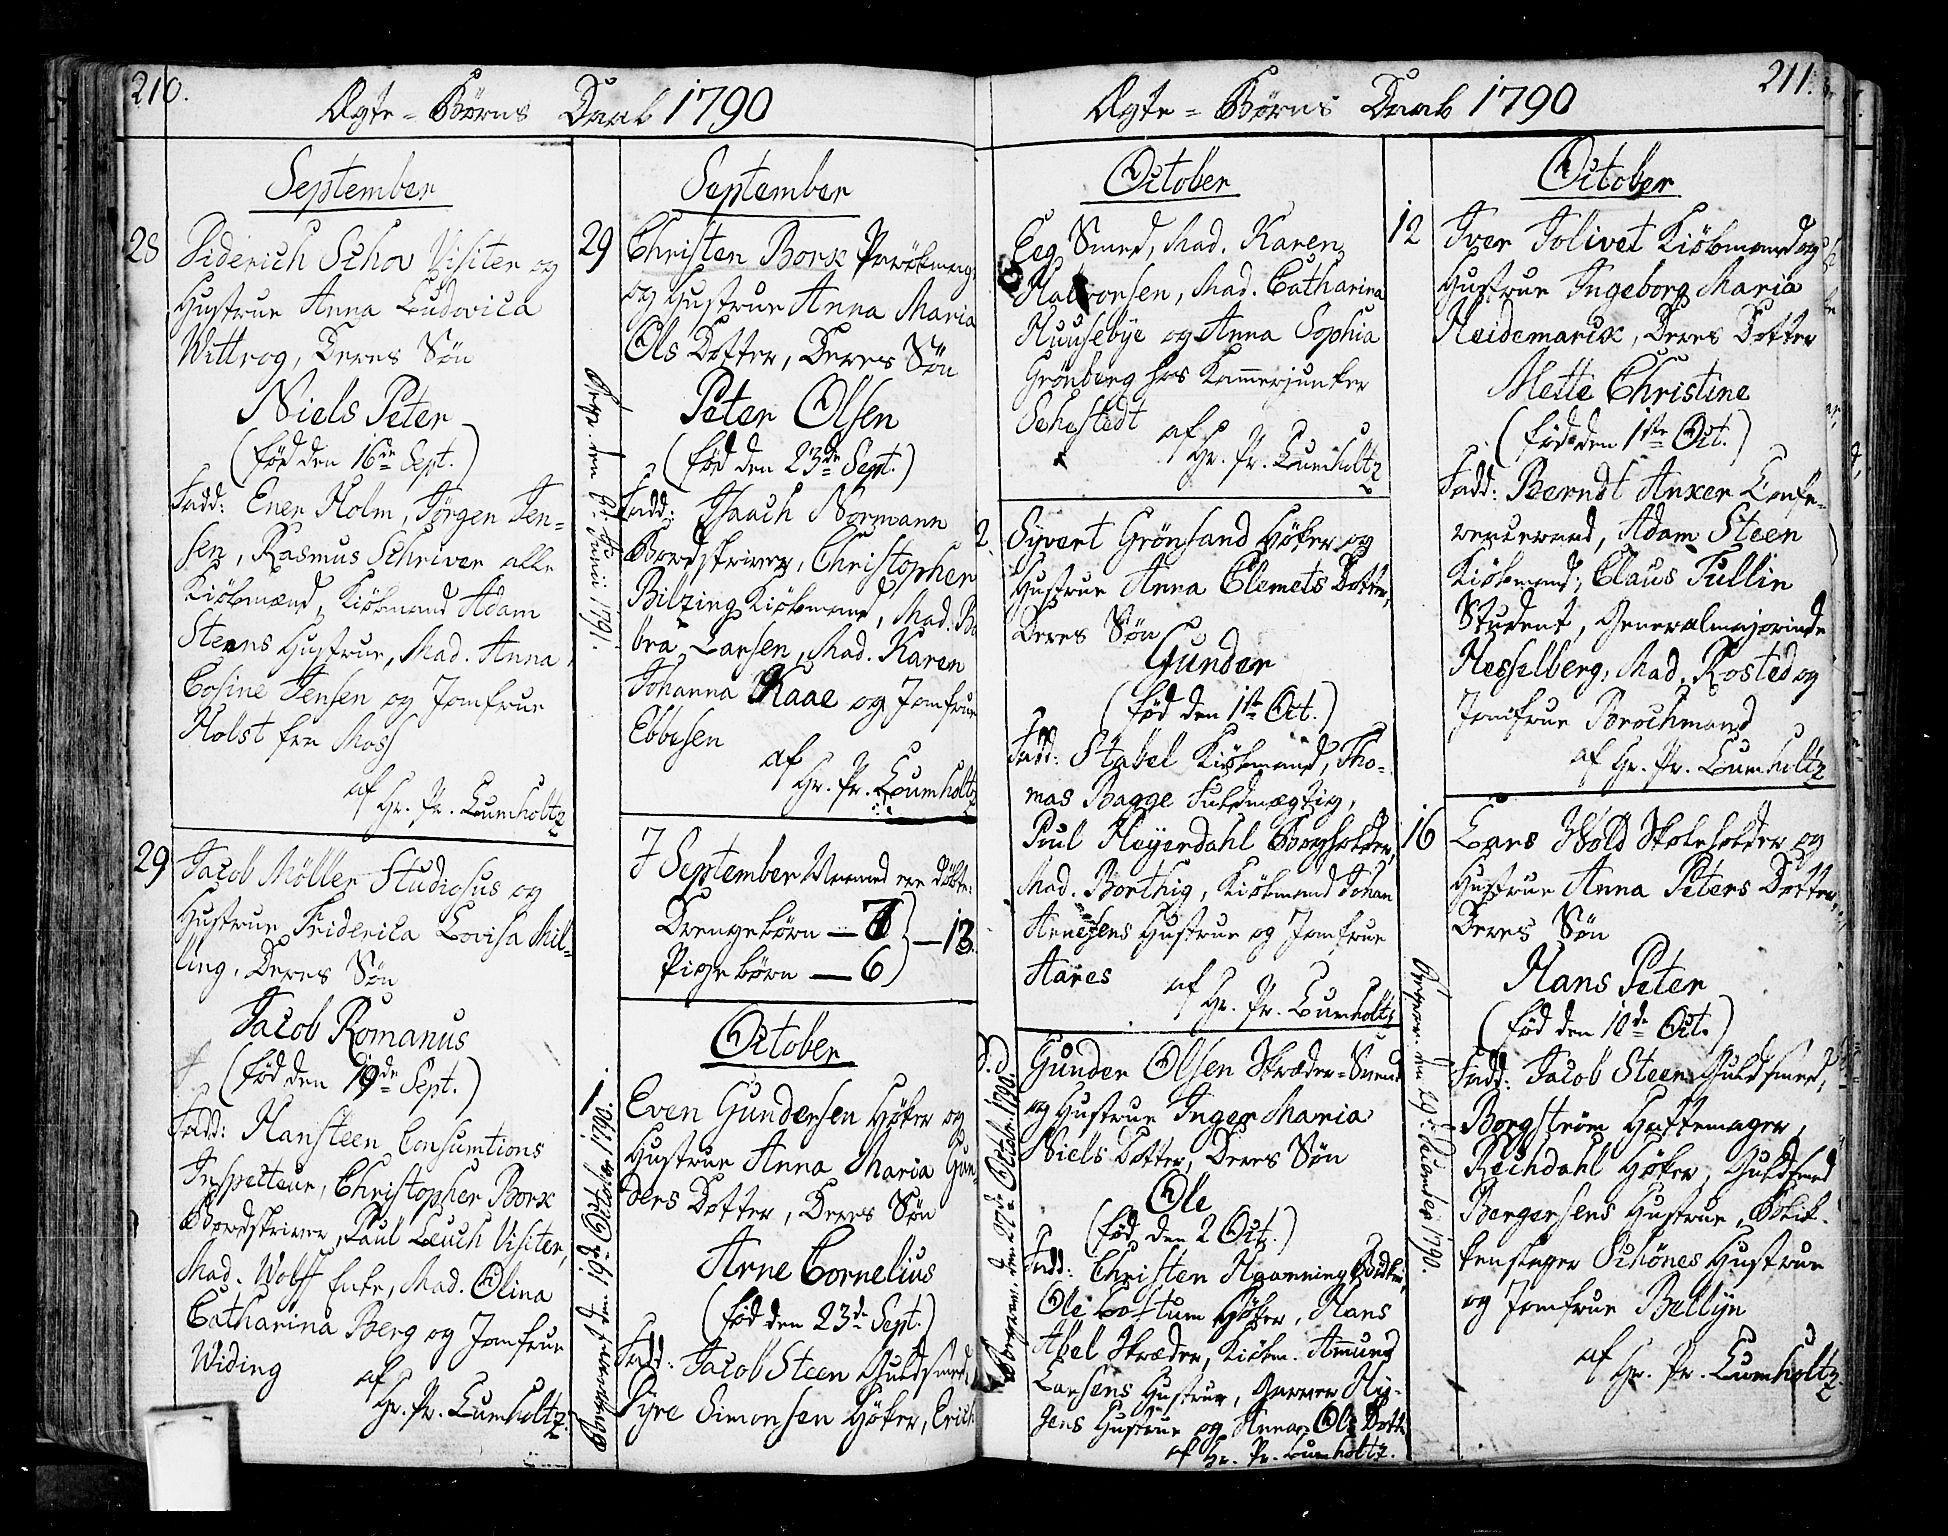 210.
Ægte = Børns Daab 1790
September
28
Diderich Schov Visiter og
Hustrue Anna Ludovica
Wittrog, Deres Søn
Niels Peter
(fød den 16de Sept.)
Fadd: Ener Holm, Jørgen Jen=
sen, Rasmus Schriver alle
Kiøbmænd, Kiøbmand Adam
Steens Hustrue, Mad. Anna
Cosine Jensen og Jomfrue
Holst fra Moss
af
Hr. Pr. Lumholtz
29
Jacob Möller Studiosus og
Hustrue Friderica Lovisa Mil-
ling, Deres Søn
Jacob Romanus
(fød den 19de Sept.)
Fadd: Hansteen Consumtions
Inspecteur, Christopher Borx
Bordskriver, Paul Leuch Visiter,
Mad. Wolff Enke, Mad. Olina
Catharina Berg og Jomfrue
Widing
af
Hr. Pr. Lumholtz
September
29
Christen Borx
og Hustrue Anna Maria
Ols Dotter, Deres Søn
Peter Olsen
(fød den 23de Sept.)
Fadd: Isaach Normann
Bordskriver, Christopher
Bilzing Kiøbmand, Mad. Ba
bra Larsen, Mad. Karen
Johanna Kaae og Jomfrue
Ebbesen
af
Hr. Pr. Lumholtz
Junii 1791.
I September Maaned ere døbte:
Drengebørn — 7
Pigebørn — 6
— 13.
October
1.
Even Gundersen Høker og
Hustrue Anna Maria Gun-
ders Dotter, Deres Søn
Arne Cornelius
(fød den 23de Sept.)
Fadd: Jacob Steen Guldsmed,
Syre Simonsen Høker, Erich
den 19de October 1790.
211.
Ægte = Børns Daab 1790
October
Eeg Smed, Mad. Karen
Halvorsen, Mad. Catharina
Huusebye og Anna Sophia
Grönberg hos Kammerjunker
Sehestedt
af
Hr. Pr. Lumholtz
2.
Syvert Grönsand Høker og
Hustrue Anna Clemets Dotter,
Deres Søn
Gunder
(fød den 1ste Oct.)
Fadd: Stabel Kiøbmand, Tho-
mas Bagge Fuldmægtig,
Poul Heyerdahl Borgholder,
Mad. Borthig, Kiøbmand Johan
Arnesens Hustrue og Jomfrue
Aares
af
Hr. Pr. Lumholtz
d. d.
Gunder Olsen Skræder=Svend
og Hustrue Inger Maria
Niels Dotter, Deres Søn
Ole
(fød den 2 Oct.)
Fadd: Christen Haanning
Ole Høker, Hans
Abel Skræder, Kiøbm. Amund
Larsens Hustrue, Garver Hy-
gens Hustrue og Anna Ole Dotte
af Hr. Pr. Lumholtz.
den 22de October 1790.
October
12
Iver Jolivet Kiøbmand og
Hustrue Ingeborg Maria
Heidemarck, Deres Dotter
Mette Christine
(fød den 1ste Oct.)
Fadd: Berndt Anker Confe-
renceraad, Adam Steen
Kiøbmand, Claus Tullin
Student, Generalmajorinde
Hesselberg, Mad. Rosted og
Jomfrue Brochmand
af Hr. Pr. Lumholtz
16
Lars Wold Skoleholder og
Hustrue Anna Peters Dotter,
Deres Søn
Hans Peter
(fød den 10de Oct.)
Fadd: Jacob Steen Guldsmed,
Borgström Hattemager,
Reichdahl Høker, Guldsmed
Bergersens Hustrue, Blik-
kenslager Schönes Hustrue
og Jomfrue Bellijn
af
Hr. Pr. Lumholtz
1790.